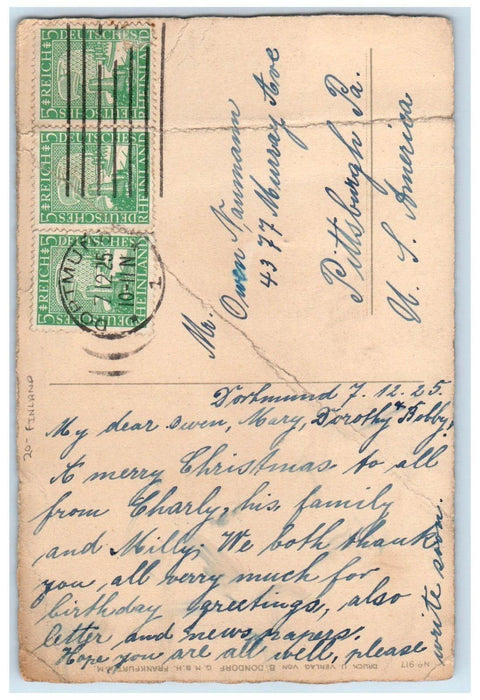 5 DEUTSCHES 5
REICH RHEINLAND
5 DEUTSCHES 5
REICH RHEINLAND
5 DEUTSCHES 5
REICH RHEINLAND
7 12 25
10-11 N
1
Mr.
Owen Naumann
4377 Murray Ave
Pittsburgh Pa.
U. S. America
20- FINLAND
Dortmund 7.12.25.
My dear Owen, Mary, Dorothy + Bobby,
A merry Christmas to all
from Charly, his family
and Milly. We both thank
you, all verry much for
birthday greetings, also
letter and news papers.
Hope you are all well, please
write soon.
DRUCK U. VERLAG VON B. DONDORF G. M. B. H. FRANKFURT A/M.
No 917